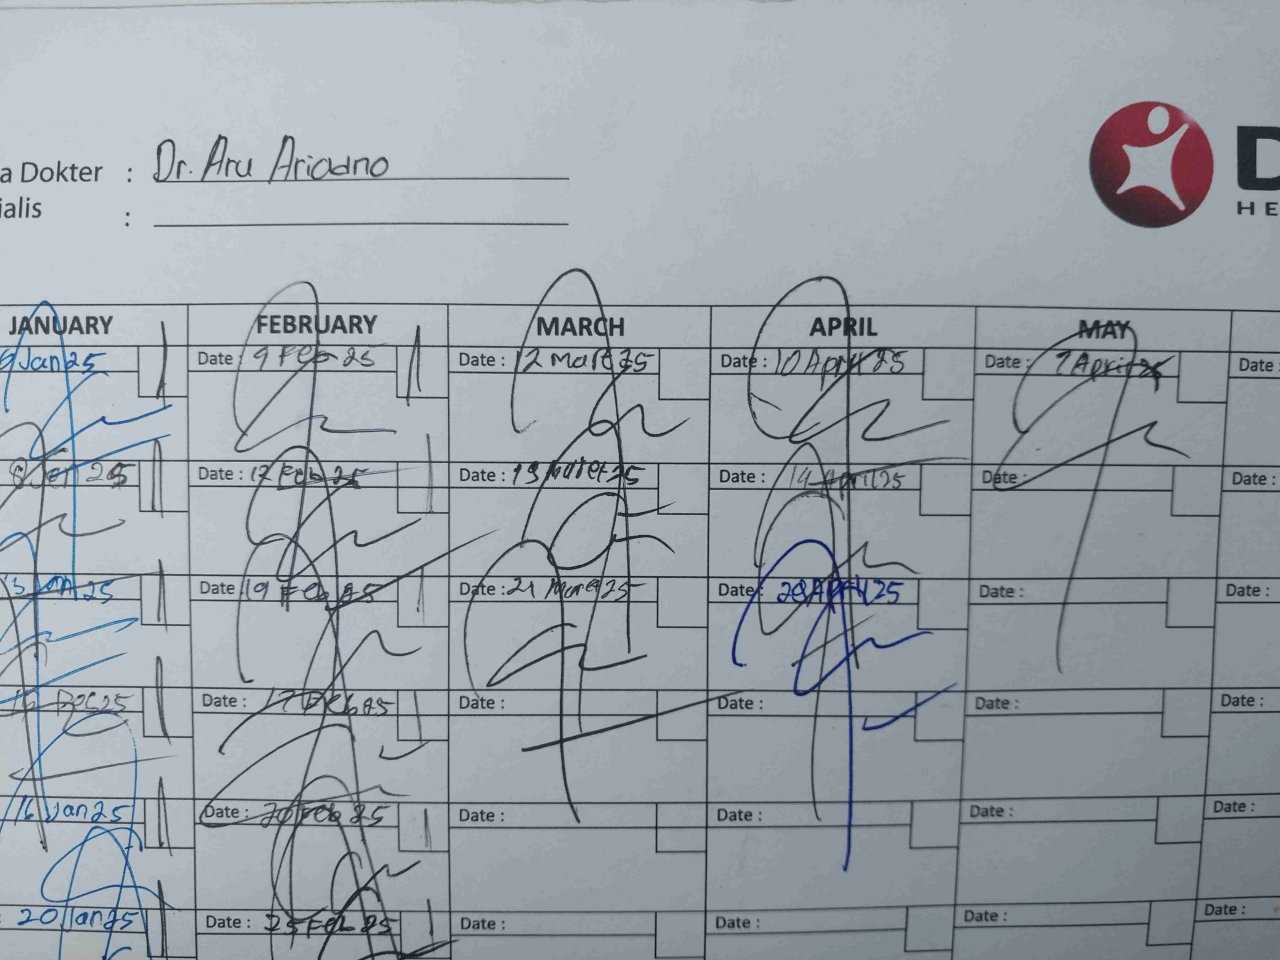 a Dokter : Dr. Aru Ariadno
ialis :
D
HE
JANUARY FEBRUARY MARCH APRIL MAY
Jan 25 Date : 9 Feb 25 Date : 12 Maret 25 Date : 10 April 25 Date : 7 April 25 Date
25 Date : 12 Feb 25 Date : 19 Maret 25 Date : 14 April 25 Date : Date :
Jan 25 Date : 19 Feb 25 Date : 21 Maret 25 Date : 28 April 25 Date : Date :
25 Date : 17 Feb 25 Date : Date : Date : Date :
16 Jan 25 Date : 20 Feb 25 Date : Date : Date : Date :
: 20 Jan 25 Date : 25 Feb 25 Date : Date : Date : Date :